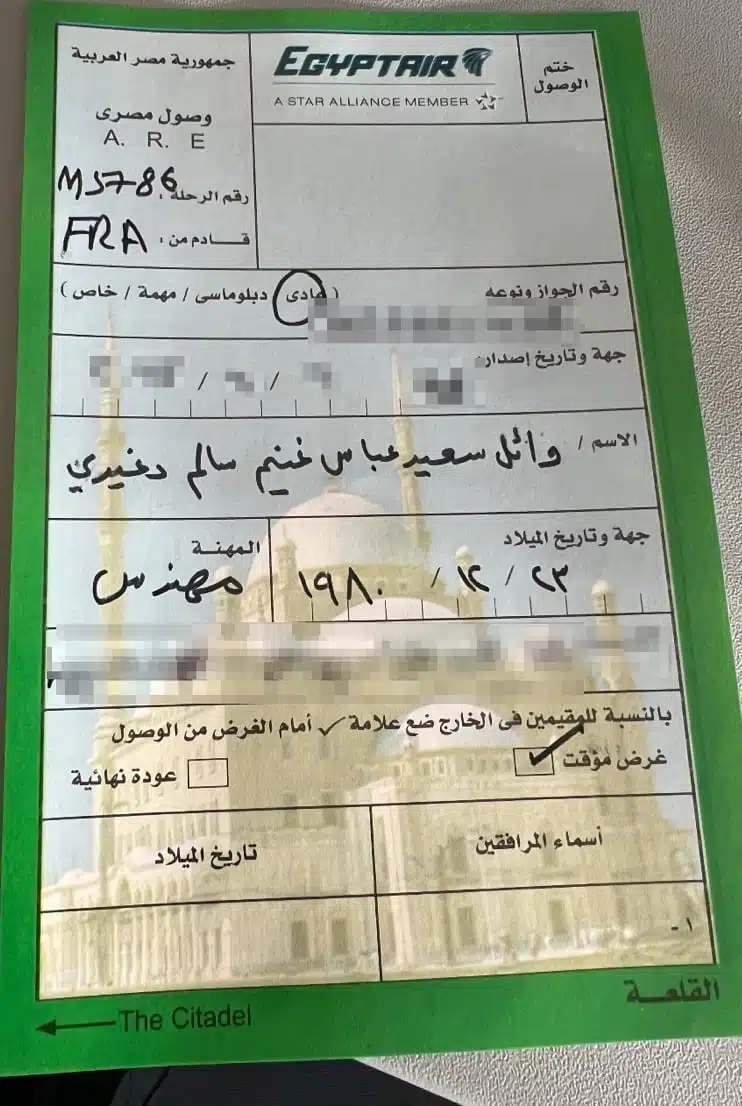 جمهورية مصر العربية
EGYPTAIR
A STAR ALLIANCE MEMBER
ختم
الوصول
وصول مصرى
A. R. E
رقم الرحلة : MS786
قادم من : FRA
رقم الجواز ونوعه ( عادى / دبلوماسى / مهمة / خاص )
جهة وتاريخ إصداره / /
الاسم / وائل سعيد عباس غنيم سالم دغيدي
جهة وتاريخ الميلاد
٢٣ / ١٢ / ١٩٨٠
المهنة
مهندس
بالنسبة للمقيمين فى الخارج ضع علامة ✓ أمام الغرض من الوصول
غرض مؤقت ✓ عودة نهائية
أسماء المرافقين
تاريخ الميلاد
١ -
القلعة
The Citadel